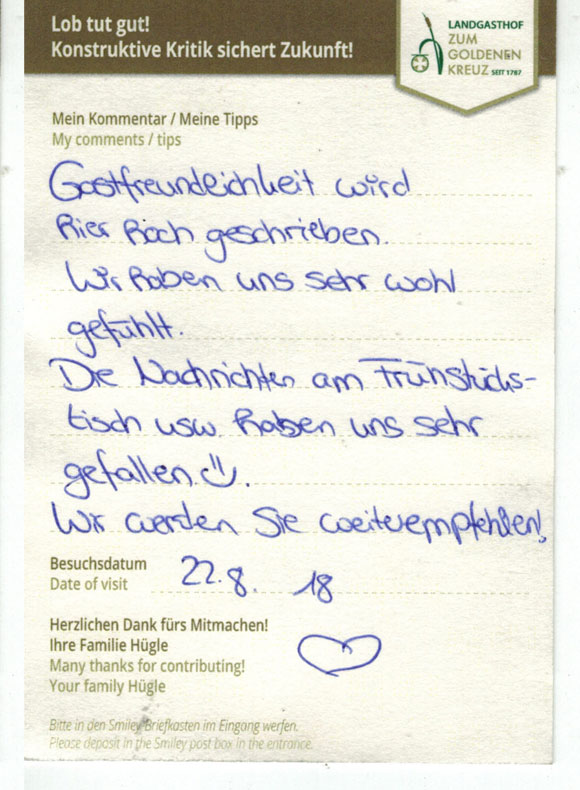 Lob tut gut!
Konstruktive Kritik sichert Zukunft!
LANDGASTHOF
ZUM
GOLDENEN
KREUZ SEIT 1787
Mein Kommentar / Meine Tipps
My comments / tips
Gastfreundlichkeit wird
hier hoch geschrieben.
Wir haben uns sehr wohl
gefühlt.
Die Nachrichten am Frühstücks-
tisch usw. haben uns sehr
gefallen.
Wir werden Sie weiterempfehlen!
Besuchsdatum
Date of visit
22.8. 18
Herzlichen Dank fürs Mitmachen!
Ihre Familie Hügle
Many thanks for contributing!
Your family Hügle
Bitte in den Smiley Briefkasten im Eingang werfen.
Please deposit in the Smiley post box in the entrance.